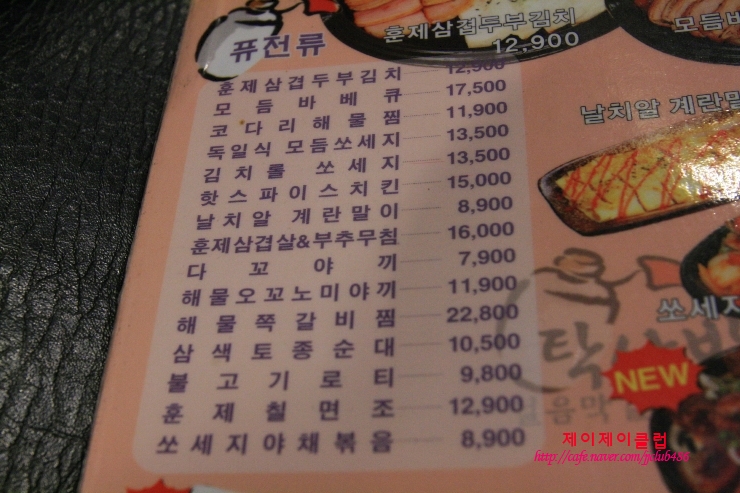 퓨전류
훈제삼겹두부김치
12,900
모듬바
훈제삼겹두부김치 12,900
모듬바베큐 17,500
코다리해물찜 11,900
독일식 모듬쏘세지 13,500
김치롤 쏘세지 13,500
핫스파이스치킨 15,000
날치알 계란말이 8,900
훈제삼겹살&부추무침 16,000
다꼬야끼 7,900
해물오꼬노미야끼 11,900
해물쪽갈비찜 22,800
삼색토종순대 10,500
불고기로티 9,800
훈제칠면조 12,900
쏘세지야채볶음 8,900
날치알 계란말
쏘세지
NEW
제이제이클럽